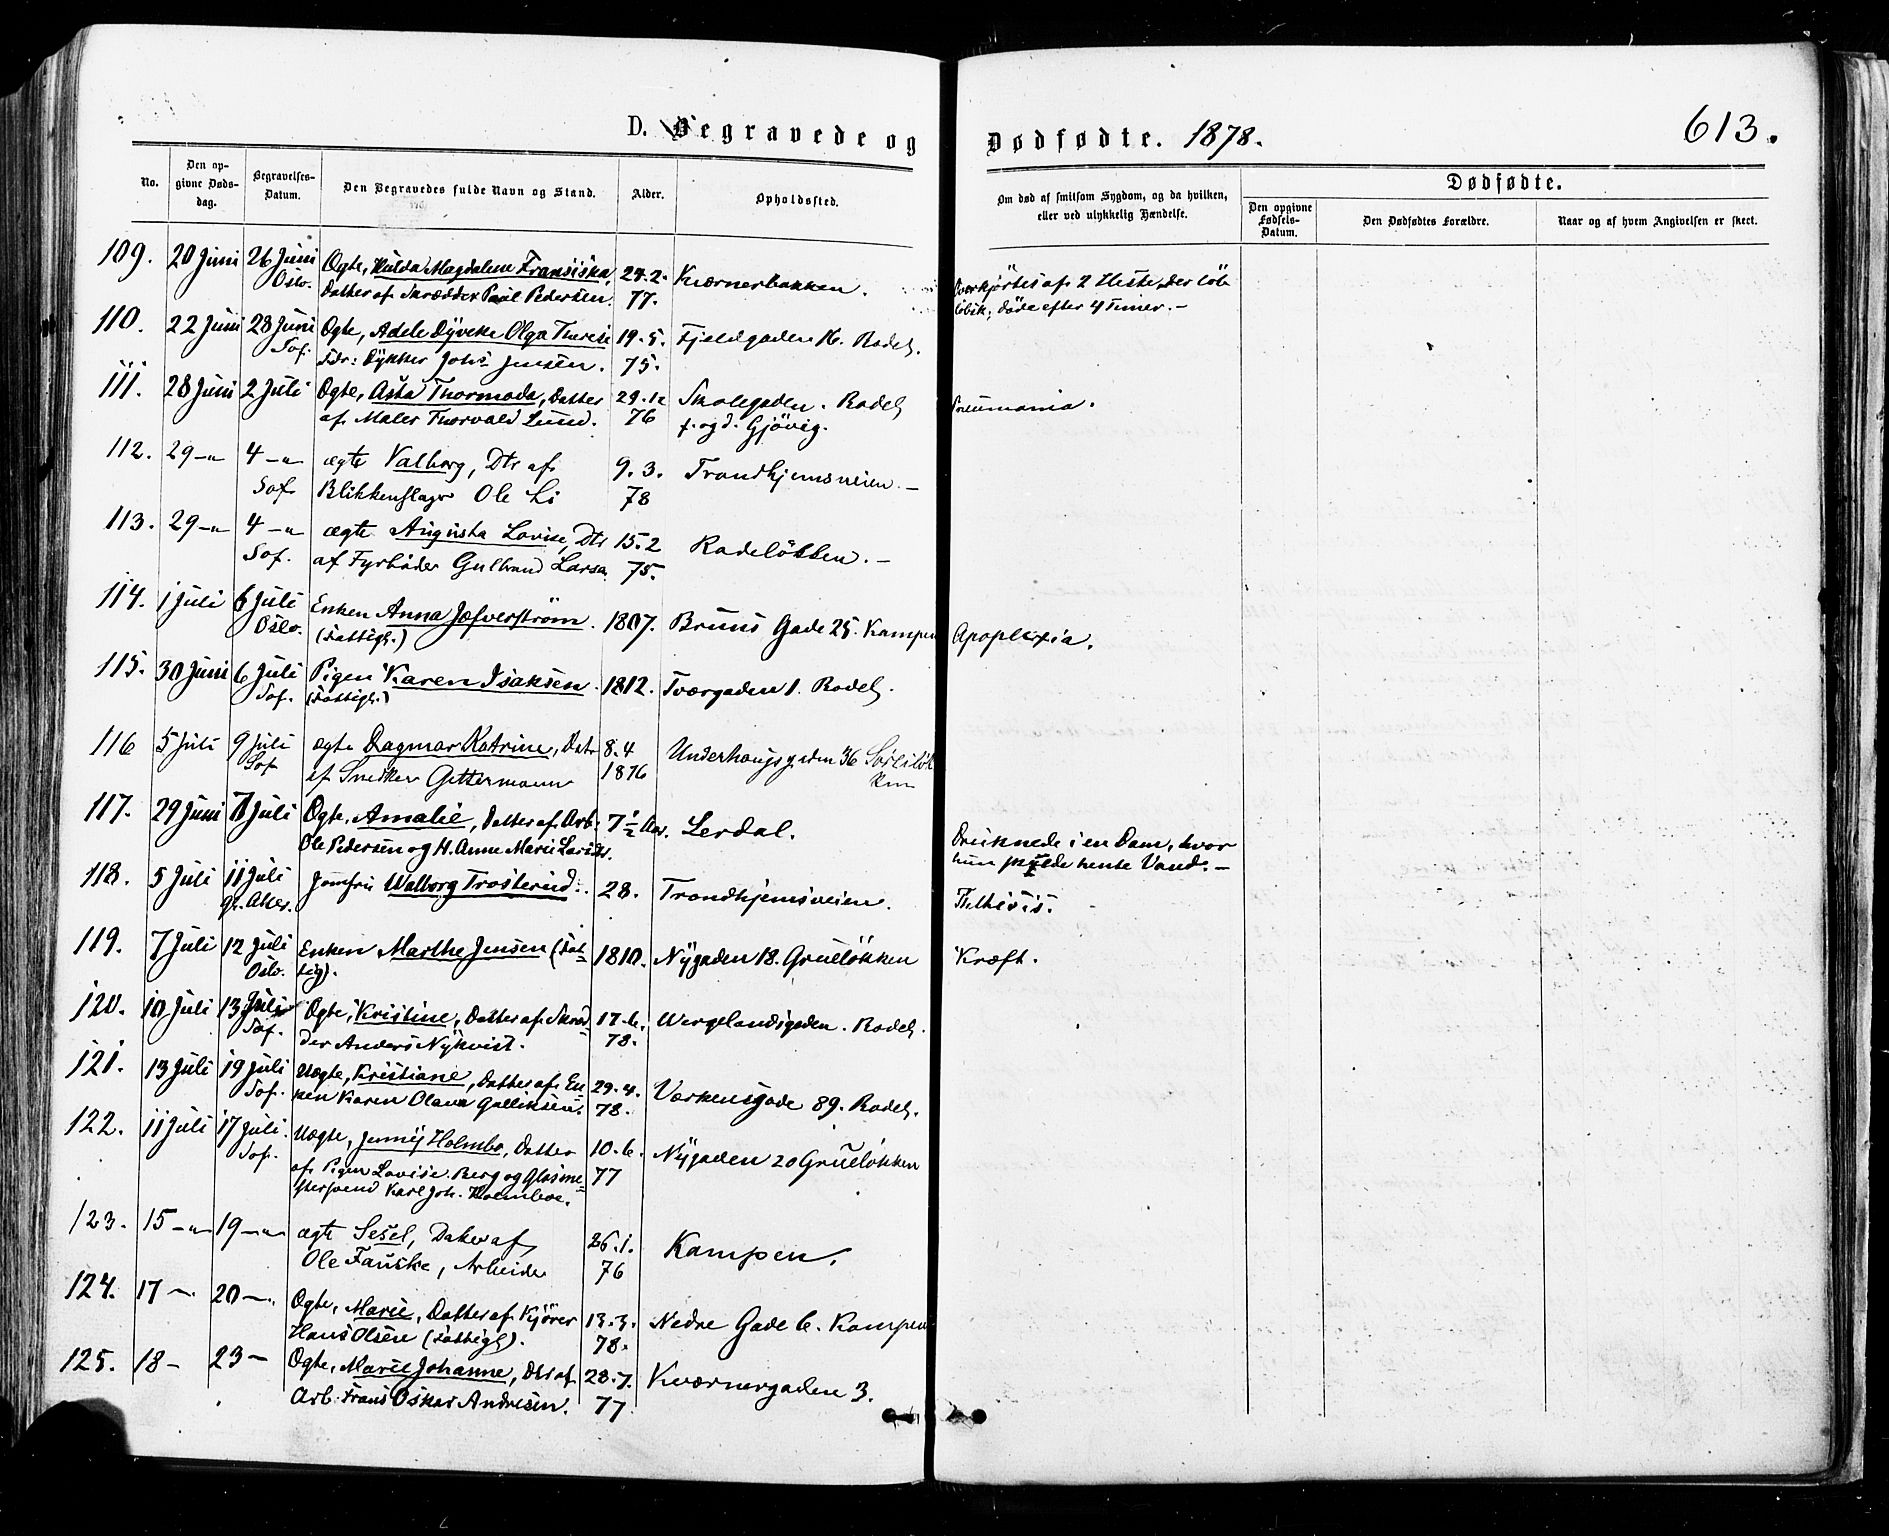 D. Begravede og Dødfødte. 1878. 613.
No. Den opgivne Dødsdag. Begravelses-Datum. Den Begravedes fulde Navn og Stand. Alder. Opholdssted. Om død af smitsom Sygdom, og da hvilken, eller ved ulykkelig Hændelse. Dødfødte.
Den opgivne Fødsels-Datum. Den Dødfødtes Forældre. Naar og af hvem Angivelsen er skeet.
109. 20 Juni 26 Juni Ogte, Hulda Magdalene Fransiska, 24.2. Kværnerbakken. Overkjørtes af 2 Heste, der løb
Oslo. Datter af Skrædder Paul Pedersen. 77. løbsk; døde efter 4 Timer. –
110. 22 Juni 28 Juni Ogte, Adele Dyveke Olga Therese 19.5. Fjeldgaden 16. Rodel.
Sof. Fdr: Dykker Johs Jensen. 75.
111. 28 Juni 2 Juli Ogte, Asta Thormoda, Datter 29.12 Skolegaden. Rodel. Pneumonia.
af Maler Thorvald Lund. 76 f. og d. Gjøvig.
112. 29 –"– 4 –"– ægte Valborg, Dtr af 9.3. Trondhjemsveien. –
Sof. Blikkenslager Ole Li 78
113. 29 –"– 4 –"– ægte Augusta Lovise, Dtr 15.2 Rodeløkken. –
Sof. af Fyrbøder Gulbrand Larsen 75.
114. 1 Juli 6 Juli Enken Anna Jæfverstrøm. 1807. Bruns Gade 25. Kampen Apoplexia.
Oslo. (Fattigl.)
115. 30 Juni 6 Juli Pigen Karen Isaksen. 1812. Tværgaden 1. Rodel.
Sof. (Fattigl.)
116 5 Juli 9 Juli ægte Dagmar Katrine, Datr 8.4 Underhaugsgaden 36
Sof. af Snedker Gettermann 1876
117. 29 Juni 7 Juli Ogte, Amalie, Datter af Arb. 7½ Aar. Lerdal. Druknede i en Dam, hvor
Ole Pedersen og H. Anne Marie Larsdr. hun skulde hente Vand. –
118. 5 Juli 11 Juli Jomfru Walborg Trosterud. 28. Trondhjemsveien. Phthisis.
gl. Aker.
119. 7 Juli 12 Juli Enken Marthe Jensen (Fat- 1810. Nygaden 18. Grueløkken Kræft.
Oslo. tig).
120. 10 Juli 13 Juli Ogte, Kristine, Datter af Skræd- 17.6. Wergelandsgaden. Rodel.
Sof. der Anders Nykvist. 78.
121. 13 Juli 19 Juli Uægte, Kristiane, Datter af En- 29.4. Værkensgade 89. Rodel.
Sof. ken Karen Olava Gulliksen. 78.
122. 11 Juli 17 Juli. Uægte, Jenny Holmbo, Datter 10.6. Nygaden 20 Grueløkken
Sof. af Pigen Lovise Berg og Glasme- 77
stersvend Karl Joh. Holmboe.
123. 15 –"– 19 –"– ægte Sesel, Datter af 26.1. Kampen.
Ole Fauske, Arbeider 76
124. 17 –"– 20 –"– Ogte, Marie, Datter af Kjører 13.3. Nedre Gade 6. Kampen
Hans Olsen (Fattigl). 78.
125. 18 – 23 – Ogte, Marie Johanne, Dtr af 28.7. Kværnergaden 3.
Arb. Frans Oskar Andresen. 77.